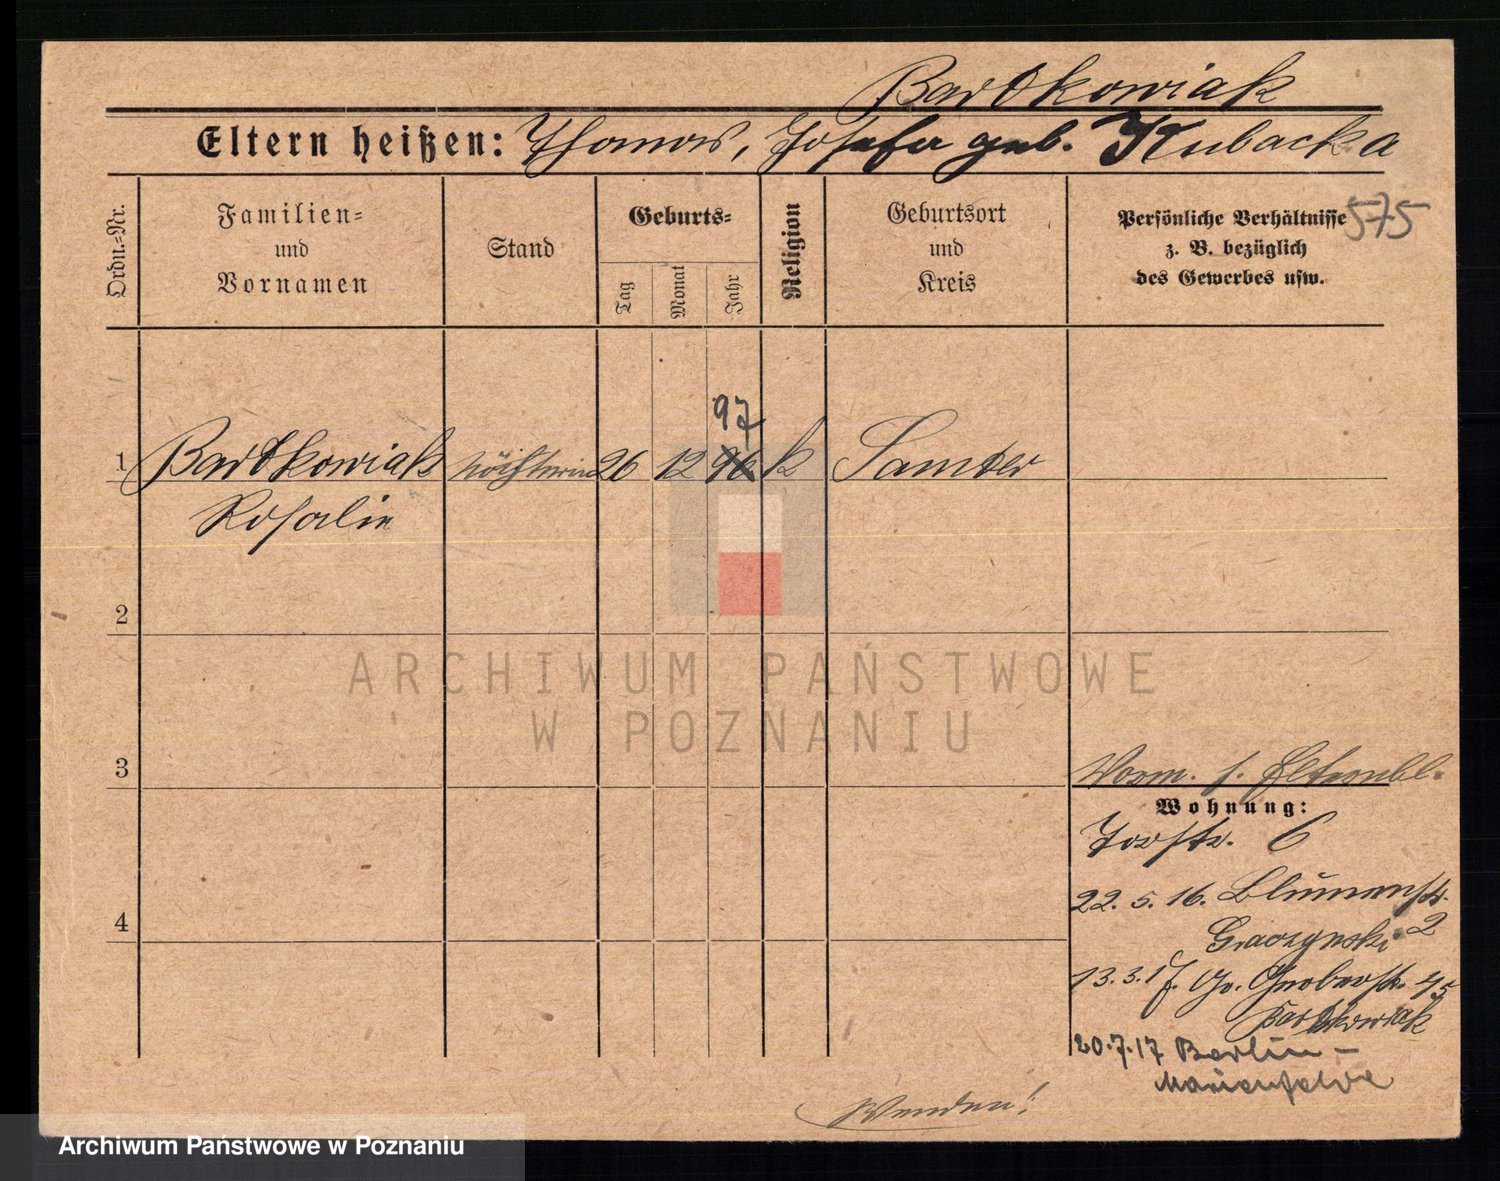 Bartkowiak
Eltern heißen: Thomas, Josefa geb. Kubacka
575
Ordn.-Nr.
Familien-
und
Vornamen
Stand
Geburts-
Tag
Monat
Jahr
Religion
Geburtsort
und
Kreis
Persönliche Verhältnisse
z. B. bezüglich
des Gewerbes usw.
97
1 Bartkowiak 26 12 96 k Samter
Rosalie
2
3
4
Vorm. s. Elternbl.
Wohnung:
Torstr. 6
22. 5. 16. Blumenstr.
2
13. 3. 17. Gr. Gerberstr. 45
Bartkowiak
20.7.17 Berlin-
Marienfelde
Wenden!
ARCHIWUM PAŃSTWOWE
W POZNANIU
Archiwum Państwowe w Poznaniu